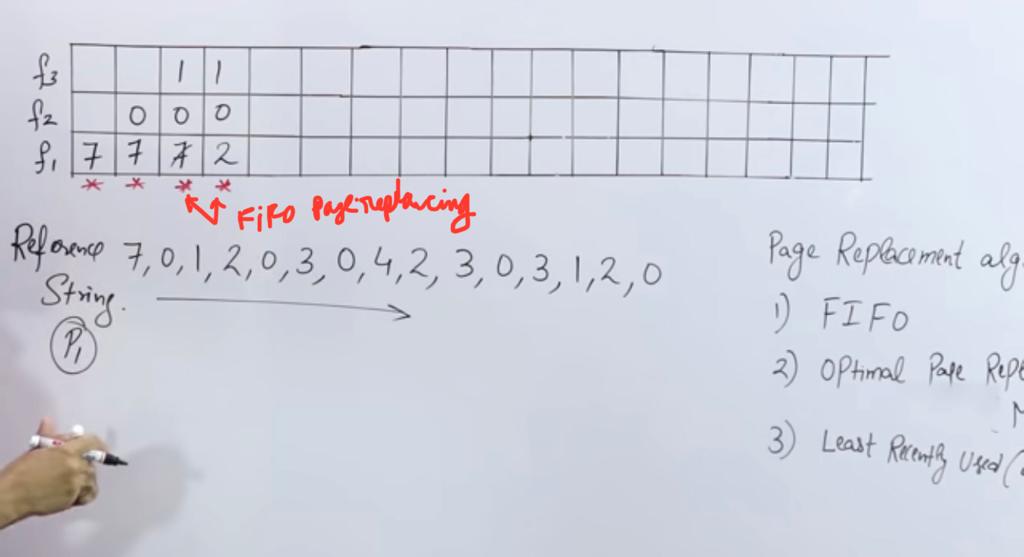 f3 1 1
f2 0 0 0
f1 7 7 7 2
* * * *
FIFO Page replacing
Reference 7,0,1,2,0,3,0,4,2,3,0,3,1,2,0
String.
P1
Page Replacement alg
1) FIFO
2) Optimal Page Repl
3) Least Recently Used (